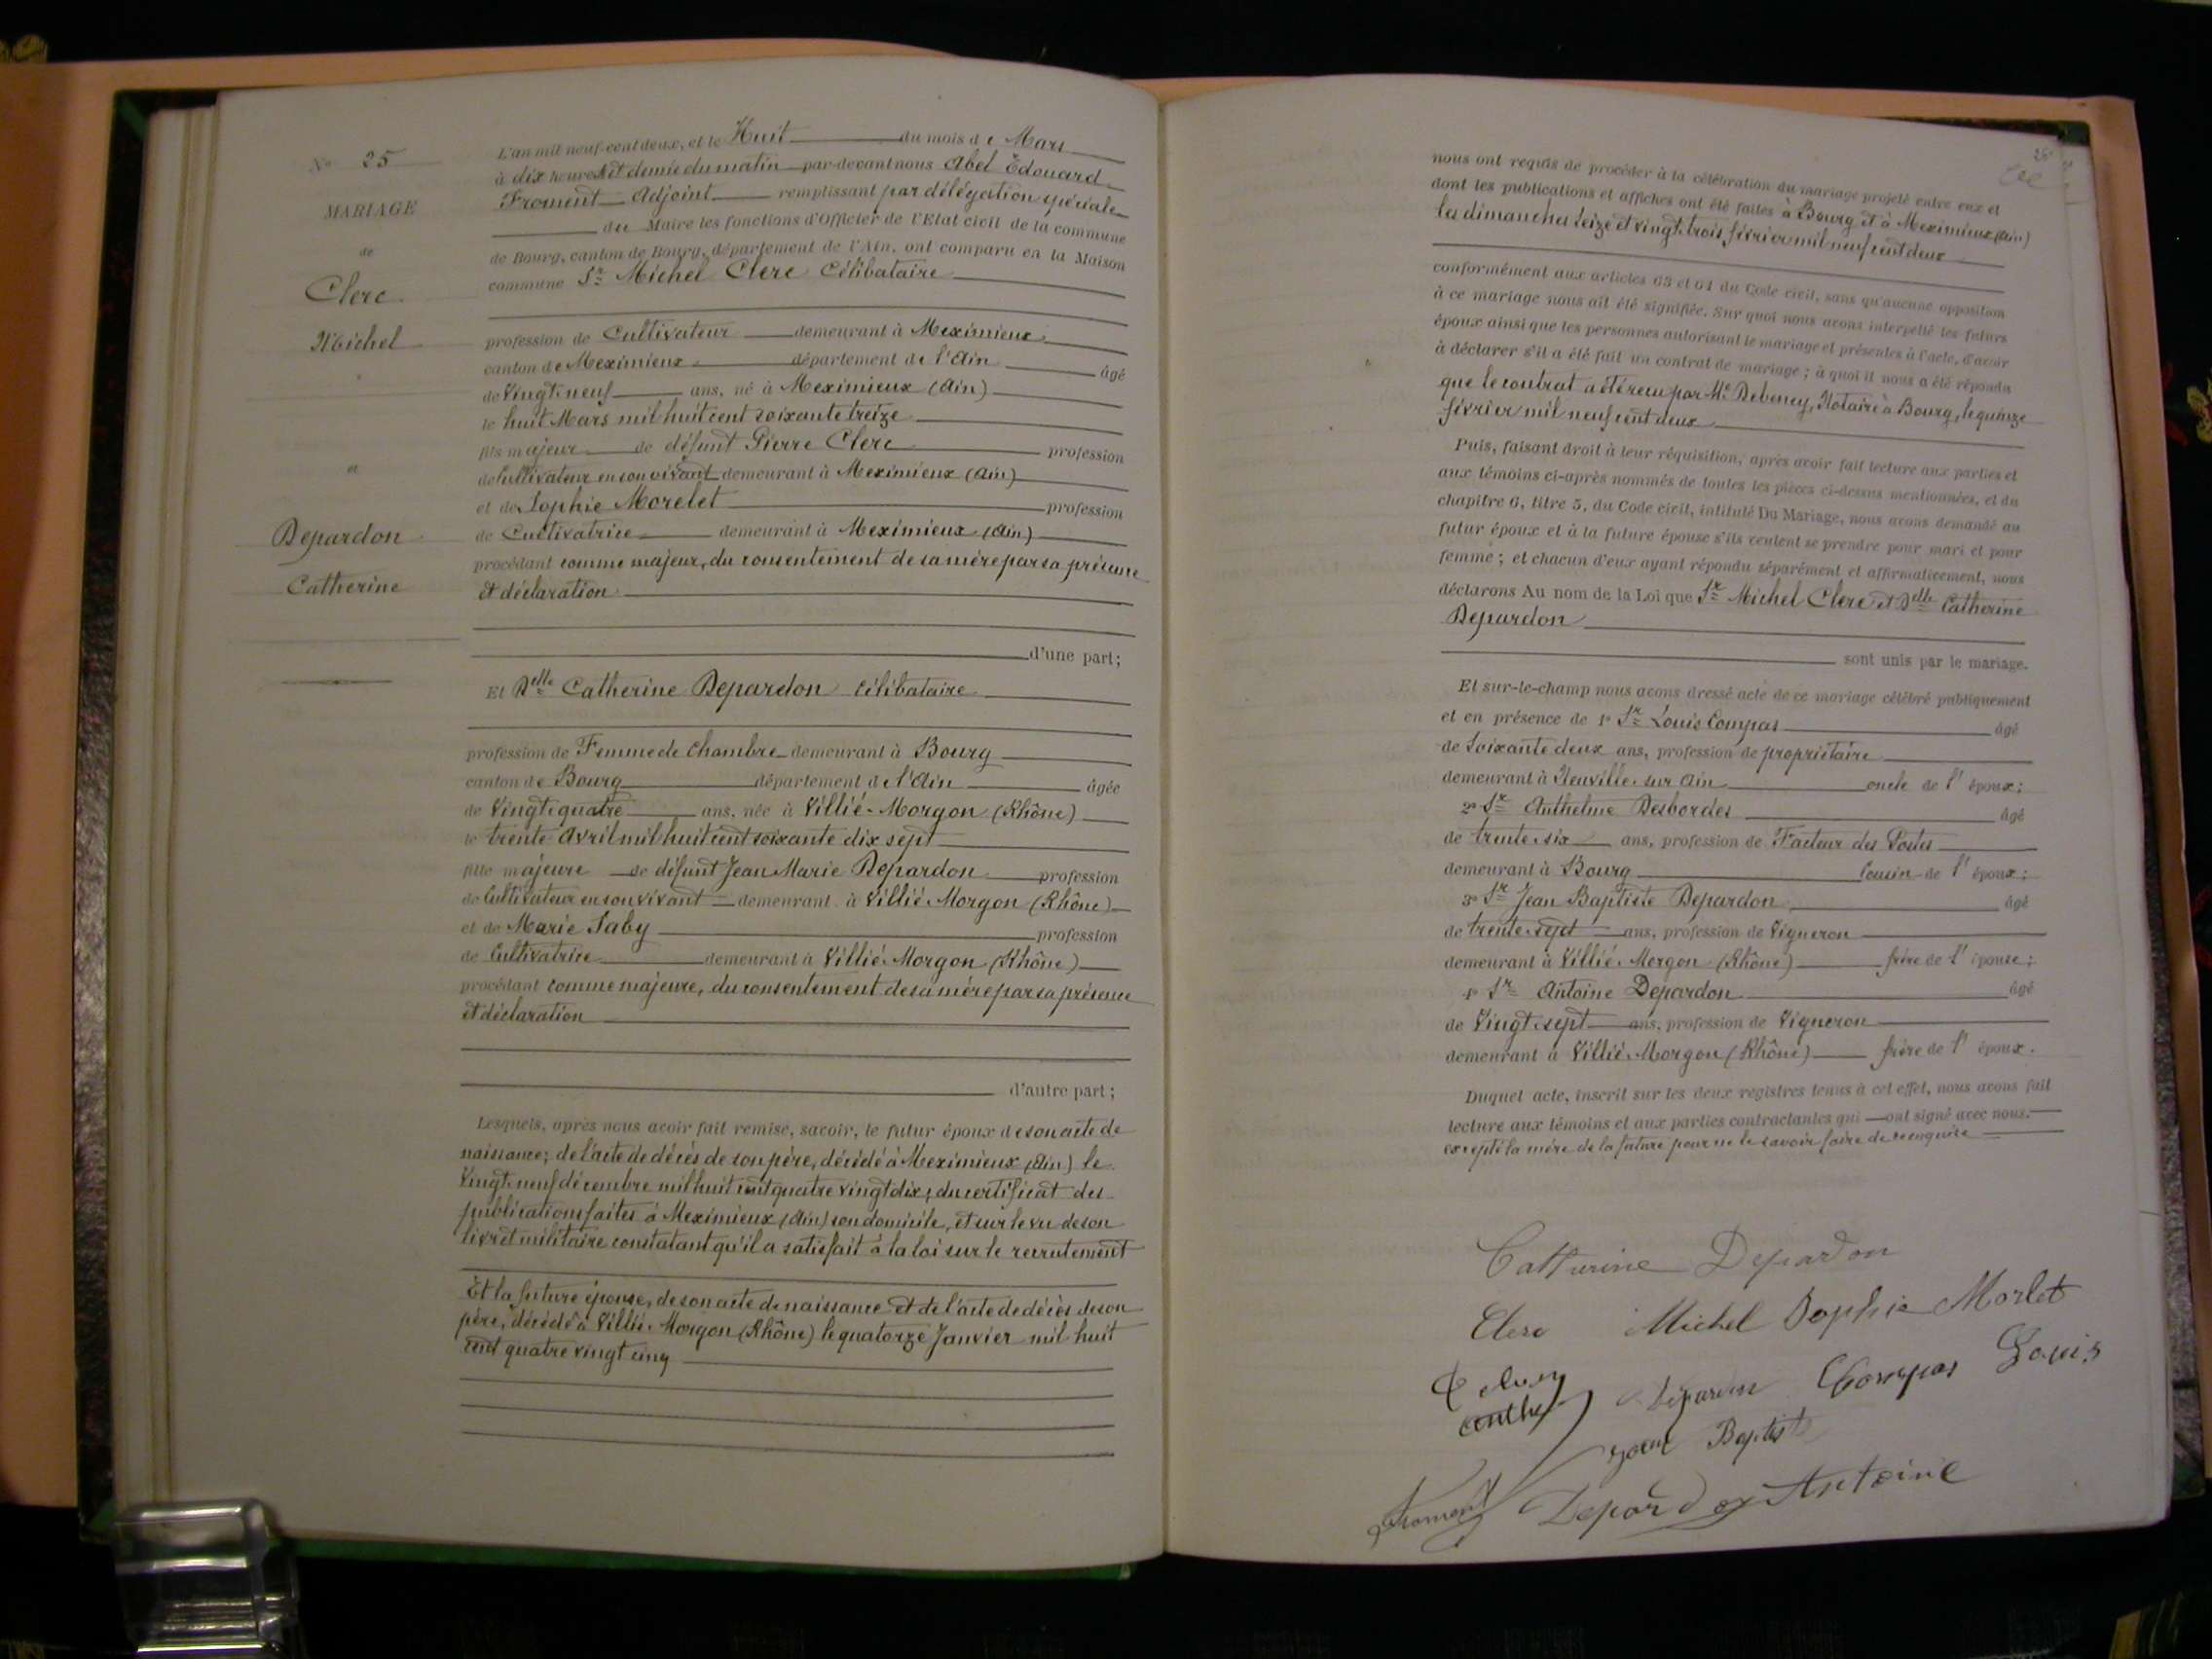 N° 25
MARIAGE
de
Clerc
Michel
a
Depardon
Catherine
L'an mil neuf-cent deux, et le Huit du mois de Mars
à dix heures et demie du matin par-devant nous Abel Edouard
Froment Adjoint remplissant par délégation spéciale
du Maire les fonctions d'Officier de l'Etat civil de la commune
de Bourg, canton de Bourg, département de l'Ain, ont comparu en la Maison
commune Sr Michel Clerc Célibataire
profession de Cultivateur demeurant à Meximieux
canton de Meximieux département de l'Ain âgé
de Vingt-neuf ans, né à Meximieux (Ain)
le huit Mars mil huit cent soixante treize
fils majeur de défunt Pierre Clerc profession
de Cultivateur en son vivant demeurant à Meximieux (Ain)
et de Sophie Morelet profession
de Cultivatrice demeurant à Meximieux (Ain)
procédant comme majeur, du consentement de sa mère par sa présence
et déclaration
d'une part;
Et Delle Catherine Depardon célibataire
profession de Femme de chambre demeurant à Bourg
canton de Bourg département de l'Ain âgée
de Vingt-quatre ans, née à Villié-Morgon (Rhône)
le trente Avril mil huit cent soixante dix sept
fille majeure de défunt Jean Marie Depardon profession
de Cultivateur en son vivant demeurant à Villié-Morgon (Rhône)
et de Marie Saby profession
de Cultivatrice demeurant à Villié-Morgon (Rhône)
procédant comme majeure, du consentement de sa mère par sa présence
et déclaration
d'autre part;
Lesquels, après nous avoir fait remise, savoir, le futur époux de son acte de
naissance; de l'acte de décès de son père, décédé à Meximieux (Ain) le
Vingt-neuf décembre mil huit cent quatre vingt dix; du certificat des
publications faites à Meximieux (Ain) son domicile, et sur le vu de son
livret militaire constatant qu'il a satisfait à la loi sur le recrutement
Et la future épouse, de son acte de naissance et de l'acte de décès de son
père, décédé à Villié-Morgon (Rhône) le quatorze Janvier mil huit
cent quatre vingt cinq
25
nous ont requis de procéder à la célébration du mariage projeté entre eux et
dont les publications et affiches ont été faites à Bourg et à Meximieux (Ain)
les dimanches Seize et vingt-trois février mil neuf cent deux
conformément aux articles 63 et 64 du Code civil, sans qu'aucune opposition
à ce mariage nous ait été signifiée. Sur quoi nous avons interpellé les futurs
époux ainsi que les personnes autorisant le mariage et présentes à l'acte, d'avoir
à déclarer s'il a été fait un contrat de mariage; à quoi il nous a été répondu
que le contrat a été reçu par Me Debeney, Notaire à Bourg, le quinze
février mil neuf cent deux
Puis, faisant droit à leur réquisition, après avoir fait lecture aux parties et
aux témoins ci-après nommés de toutes les pièces ci-dessus mentionnées, et du
chapitre 6, titre 5, du Code civil, intitulé Du Mariage, nous avons demandé au
futur époux et à la future épouse s'ils veulent se prendre pour mari et pour
femme; et chacun d'eux ayant répondu séparément et affirmativement, nous
déclarons Au nom de la Loi que Sr Michel Clerc et Delle Catherine
Depardon
sont unis par le mariage.
Et sur-le-champ nous avons dressé acte de ce mariage célébré publiquement
et en présence de 1° Sr Louis Compas âgé
de Soixante deux ans, profession de propriétaire
demeurant à Neuville-sur-Ain oncle de l'époux;
2° Sr Anthelme Desbordes âgé
de trente-six ans, profession de Facteur des Postes
demeurant à Bourg Cousin de l'époux;
3° Sr Jean Baptiste Depardon âgé
de trente-sept ans, profession de Vigneron
demeurant à Villié-Morgon (Rhône) frère de l'épouse;
4° Sr Antoine Depardon âgé
de Vingt-sept ans, profession de Vigneron
demeurant à Villié-Morgon (Rhône) frère de l'époux.
Duquel acte, inscrit sur les deux registres tenus à cet effet, nous avons fait
lecture aux témoins et aux parties contractantes qui ont signé avec nous.
excepté la mère de la future pour ne le savoir faire de ce enquise
Catherine Depardon
Clerc Michel Sophie Morlet
Compas Louis
Jean Baptiste
Froment Depardon Antoine